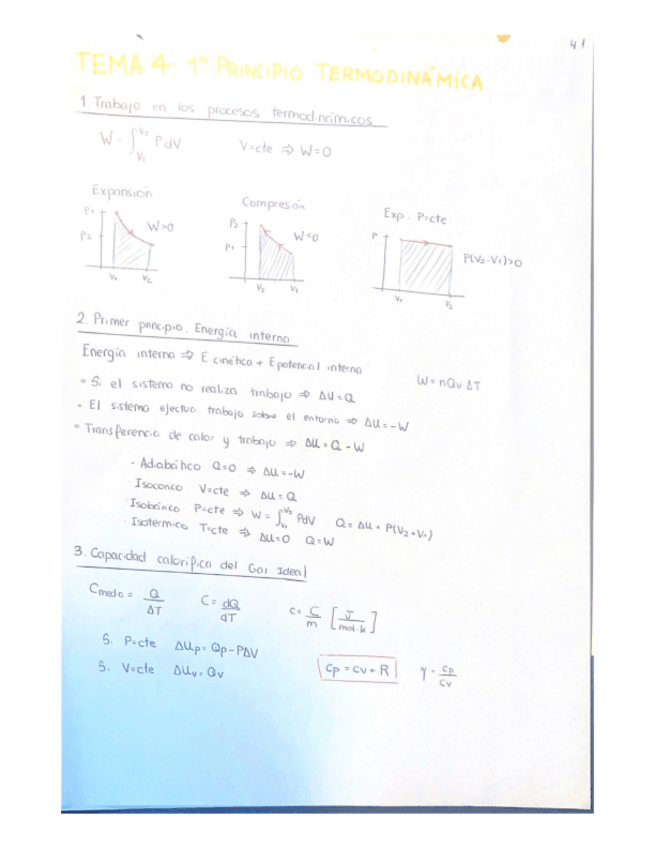 4.1
TEMA 4: 1º PRINCIPIO TERMODINÁMICA
1. Trabajo en los procesos termodinámicos
W = ∫V₁^V₂ PdV V=cte ⇒ W=0
Expansión Compresión Exp. P=cte
P₁ P₂ W>0 V₁ V₂
P₂ P₁ W<0 V₂ V₁
P P(V₂-V₁)>0 V₁ V₂
2. Primer principio. Energía interna
Energía interna ⇒ E cinética + E potencial interna
W = nQv ΔT
• Si el sistema no realiza trabajo ⇒ ΔU=Q
• El sistema efectua trabajo sobre el entorno ⇒ ΔU=-W
• Transferencia de calor y trabajo ⇒ ΔU = Q - W
· Adiabático Q=0 ⇒ ΔU=-W
· Isocórico V=cte ⇒ ΔU = Q
· Isobárico P=cte ⇒ W = ∫V₁^V₂ PdV Q = ΔU + P(V₂+V₁)
· Isotérmico T=cte ⇒ ΔU=0 Q=W
3. Capacidad calorífica del Gas Ideal
Cmedia = Q/ΔT C = dQ/dT c = C/m [J/mol·k]
Si P=cte ΔUp = Qp - PΔV
Si V=cte ΔUv = Qv Cp = Cv + R γ = Cp/Cv